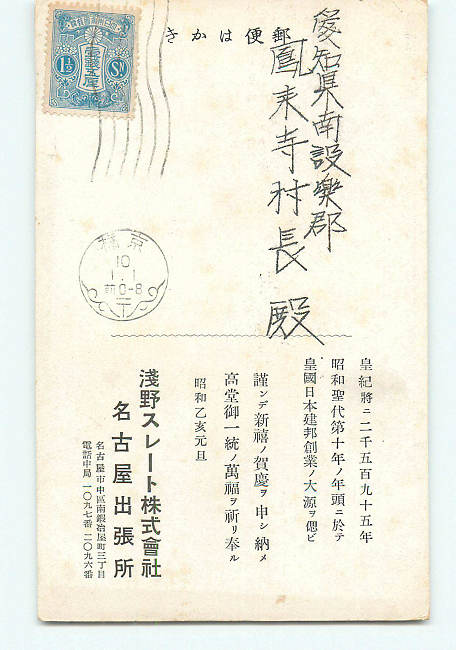 きかは便郵
1½ Sn
愛知県南設樂郡
鳳来寺村長 殿
京橋
10
1.1
前0-8
皇紀將ニ二千五百九十五年
昭和聖代第十年ノ年頭ニ於テ
皇國日本建邦創業ノ大源ヲ偲ビ
謹ンデ新禧ノ賀慶ヲ申シ納メ
高堂御一統ノ萬福ヲ祈リ奉ル
昭和乙亥元旦
淺野スレート株式會社
名古屋出張所
名古屋市中區南鍛治屋町三丁目
電話中局 一〇九七番 二〇九六番